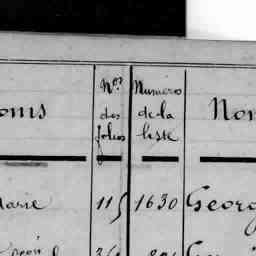 oms Nos des folios Numéros de la liste Nom
Marie 115 1630 Georg